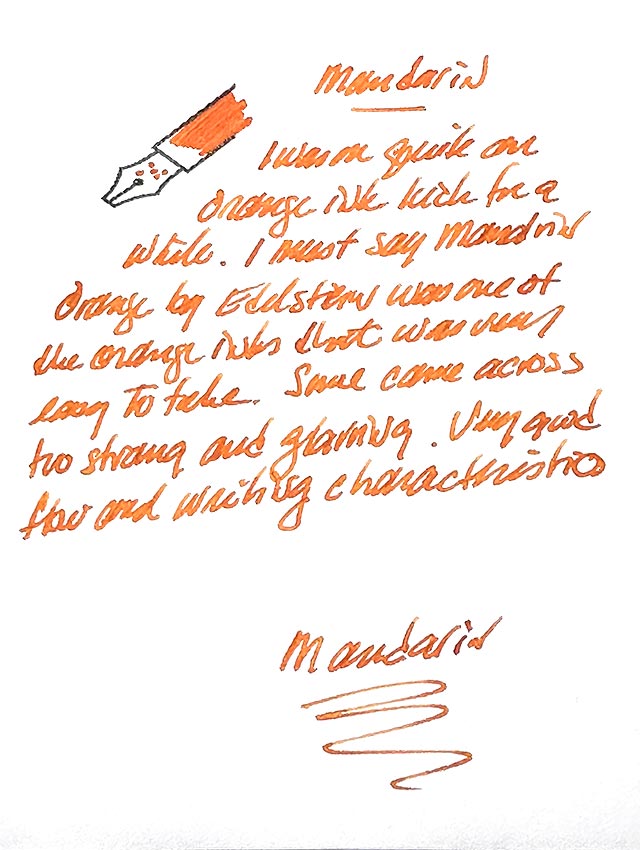 Mandarin
I was on quite an
orange ink kick for a
while. I must say Mandarin
Orange by Edelstein was one of
the orange inks that was very
easy to take. Some came across
too strong and glaring. Very good
flow and writing characteristics
Mandarin